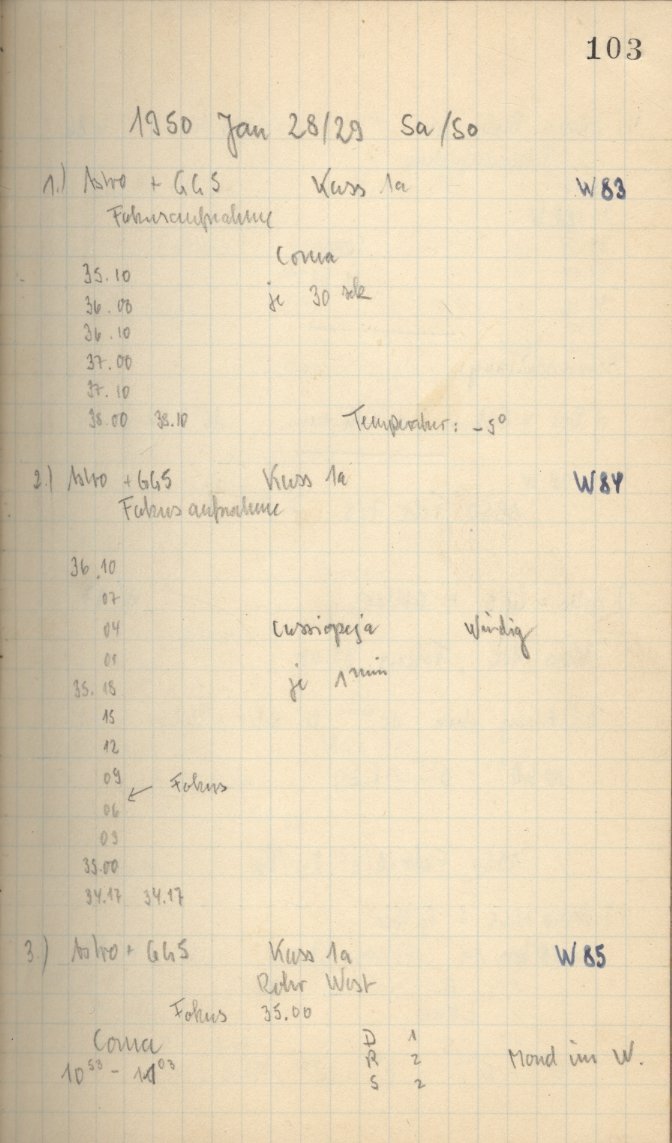 103
1950 Jan 28/29 Sa/So
1.) Astro + GG5 Kass 1a W83
Fokusaufnahme
Coma
35.10
je 30 sek
36.00
36.10
37.00
37.10
38.00 38.10 Temperatur: -5°
2.) Astro + GG5 Kass 1a W84
Fokusaufnahme
36.10
07
04 Cassiopeja Windig
01
je 1 min
35.18
15
12
09
Fokus
06
03
35.00
34.17 34.17
3.) Astro + GG5 Kass 1a W85
Rohr West
Fokus 35.00
Coma D 1
R 2 Mond im W.
10 53 - 11 03 S 2